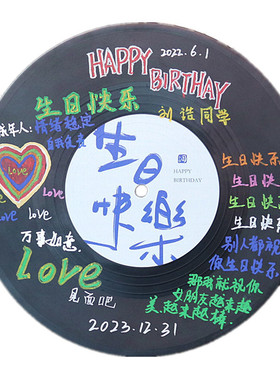 2022.6.1
HAPPY
BIRTHAY
生日快乐
刘浩同学
成年人:
情绪稳定
自我负责
Love
Love
Love
Love
Love
万事如意
Love
见面吧
2023.12.31
生日快樂
HAPPY
BIRTHDAY
生日快乐
生日快乐
生日快乐
生日快乐
别人都祝
你生日快乐
那我就祝你
女朋友越来越
美越来越棒